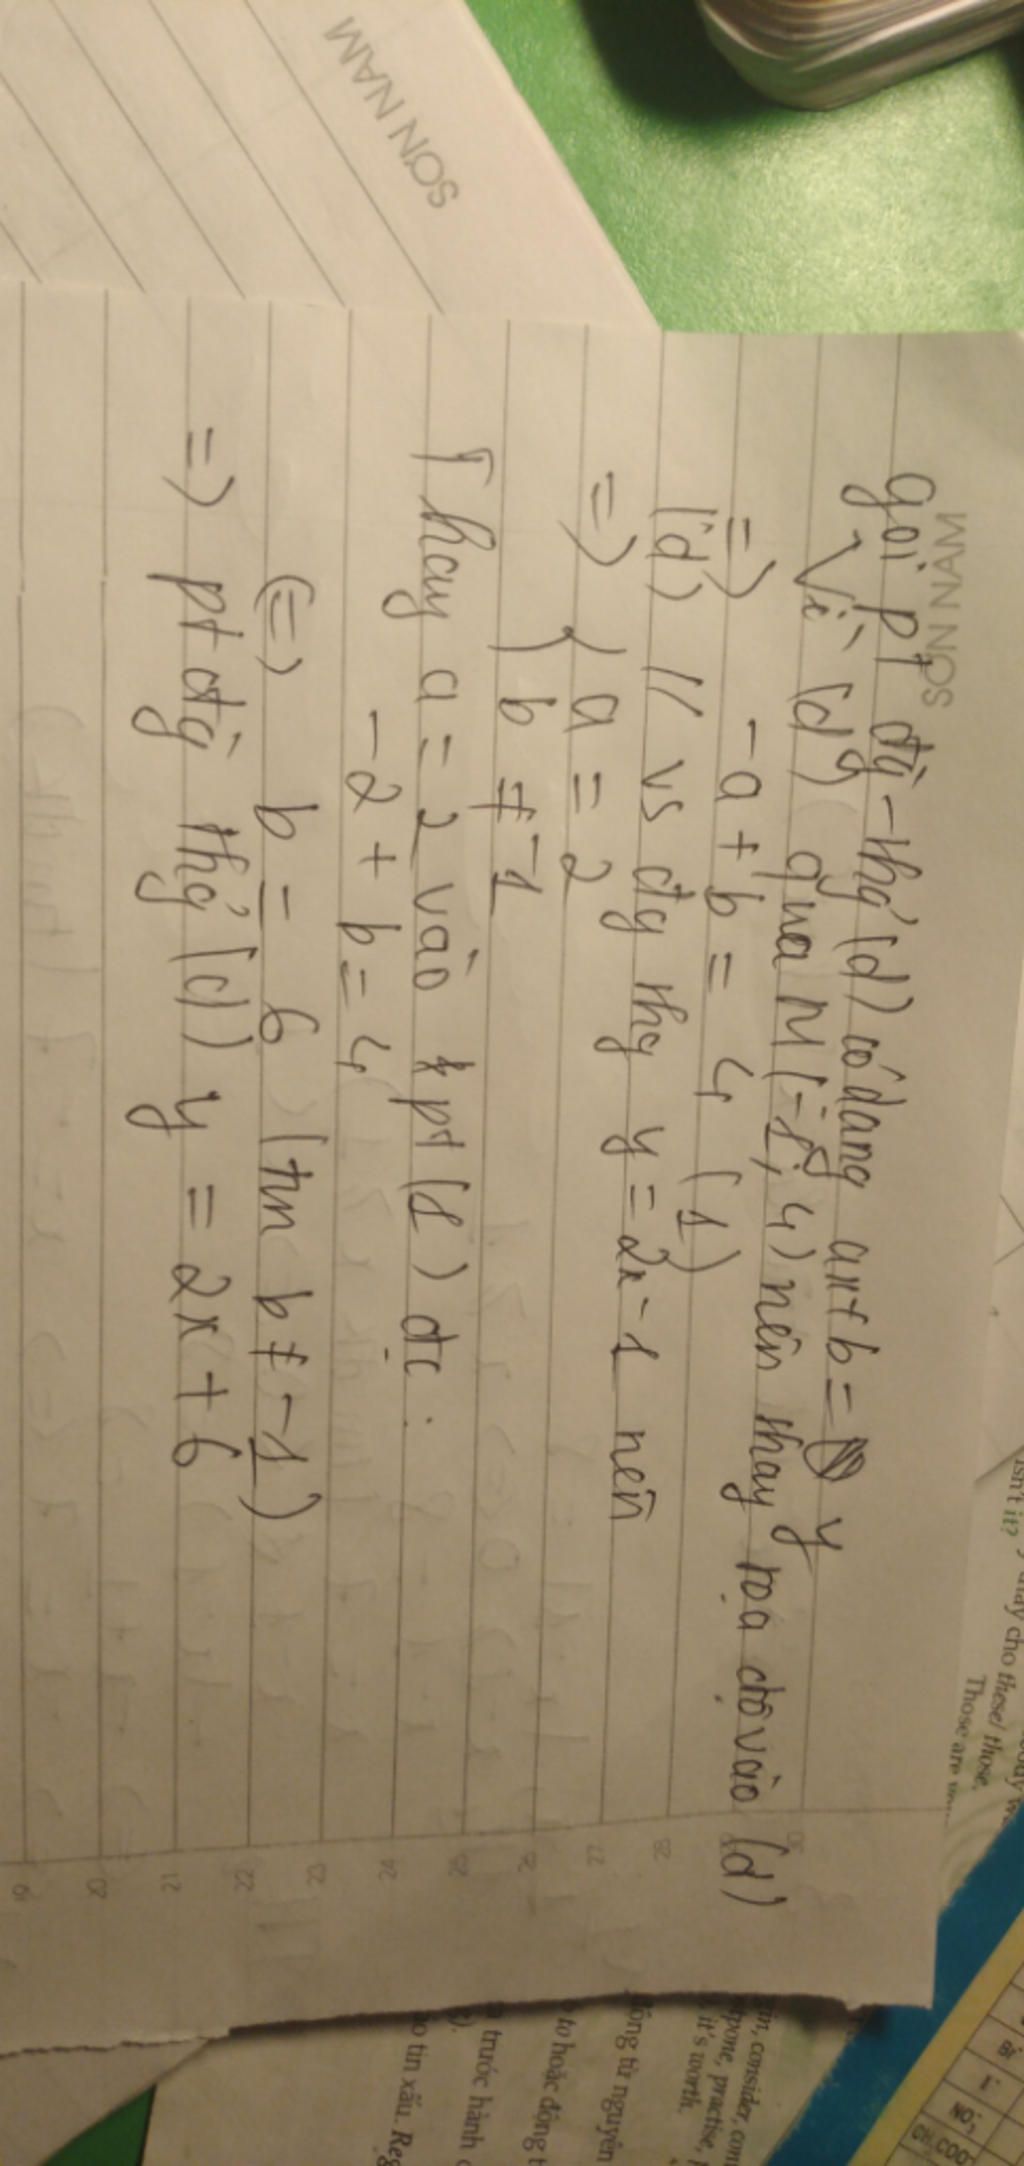 SƠN NAM
SƠN NAM
gọi pt đg thg (d) có dạng ax+b = y
Vì (d) qua M(-1; 4) nên thay toạ độ vào (d)
=) -a + b = 4 (1)
(d) // vs đg thg y = 2x - 1 nên
=) { a = 2
b ≠ -1
Thay a = 2 vào pt (1) đc :
-2 + b = 4
(=) b = 6 (tm b ≠ -1)
=) pt đg thg (d) y = 2x + 6
28
27
26
25
24
23
22
21
20
19
isn't it?
cho these/ those.
Those are
consider,
practise,
it's worth.
động từ nguyên
to hoặc động t
trước hành
tin xấu.
Bi
I
CH₃COO⁻